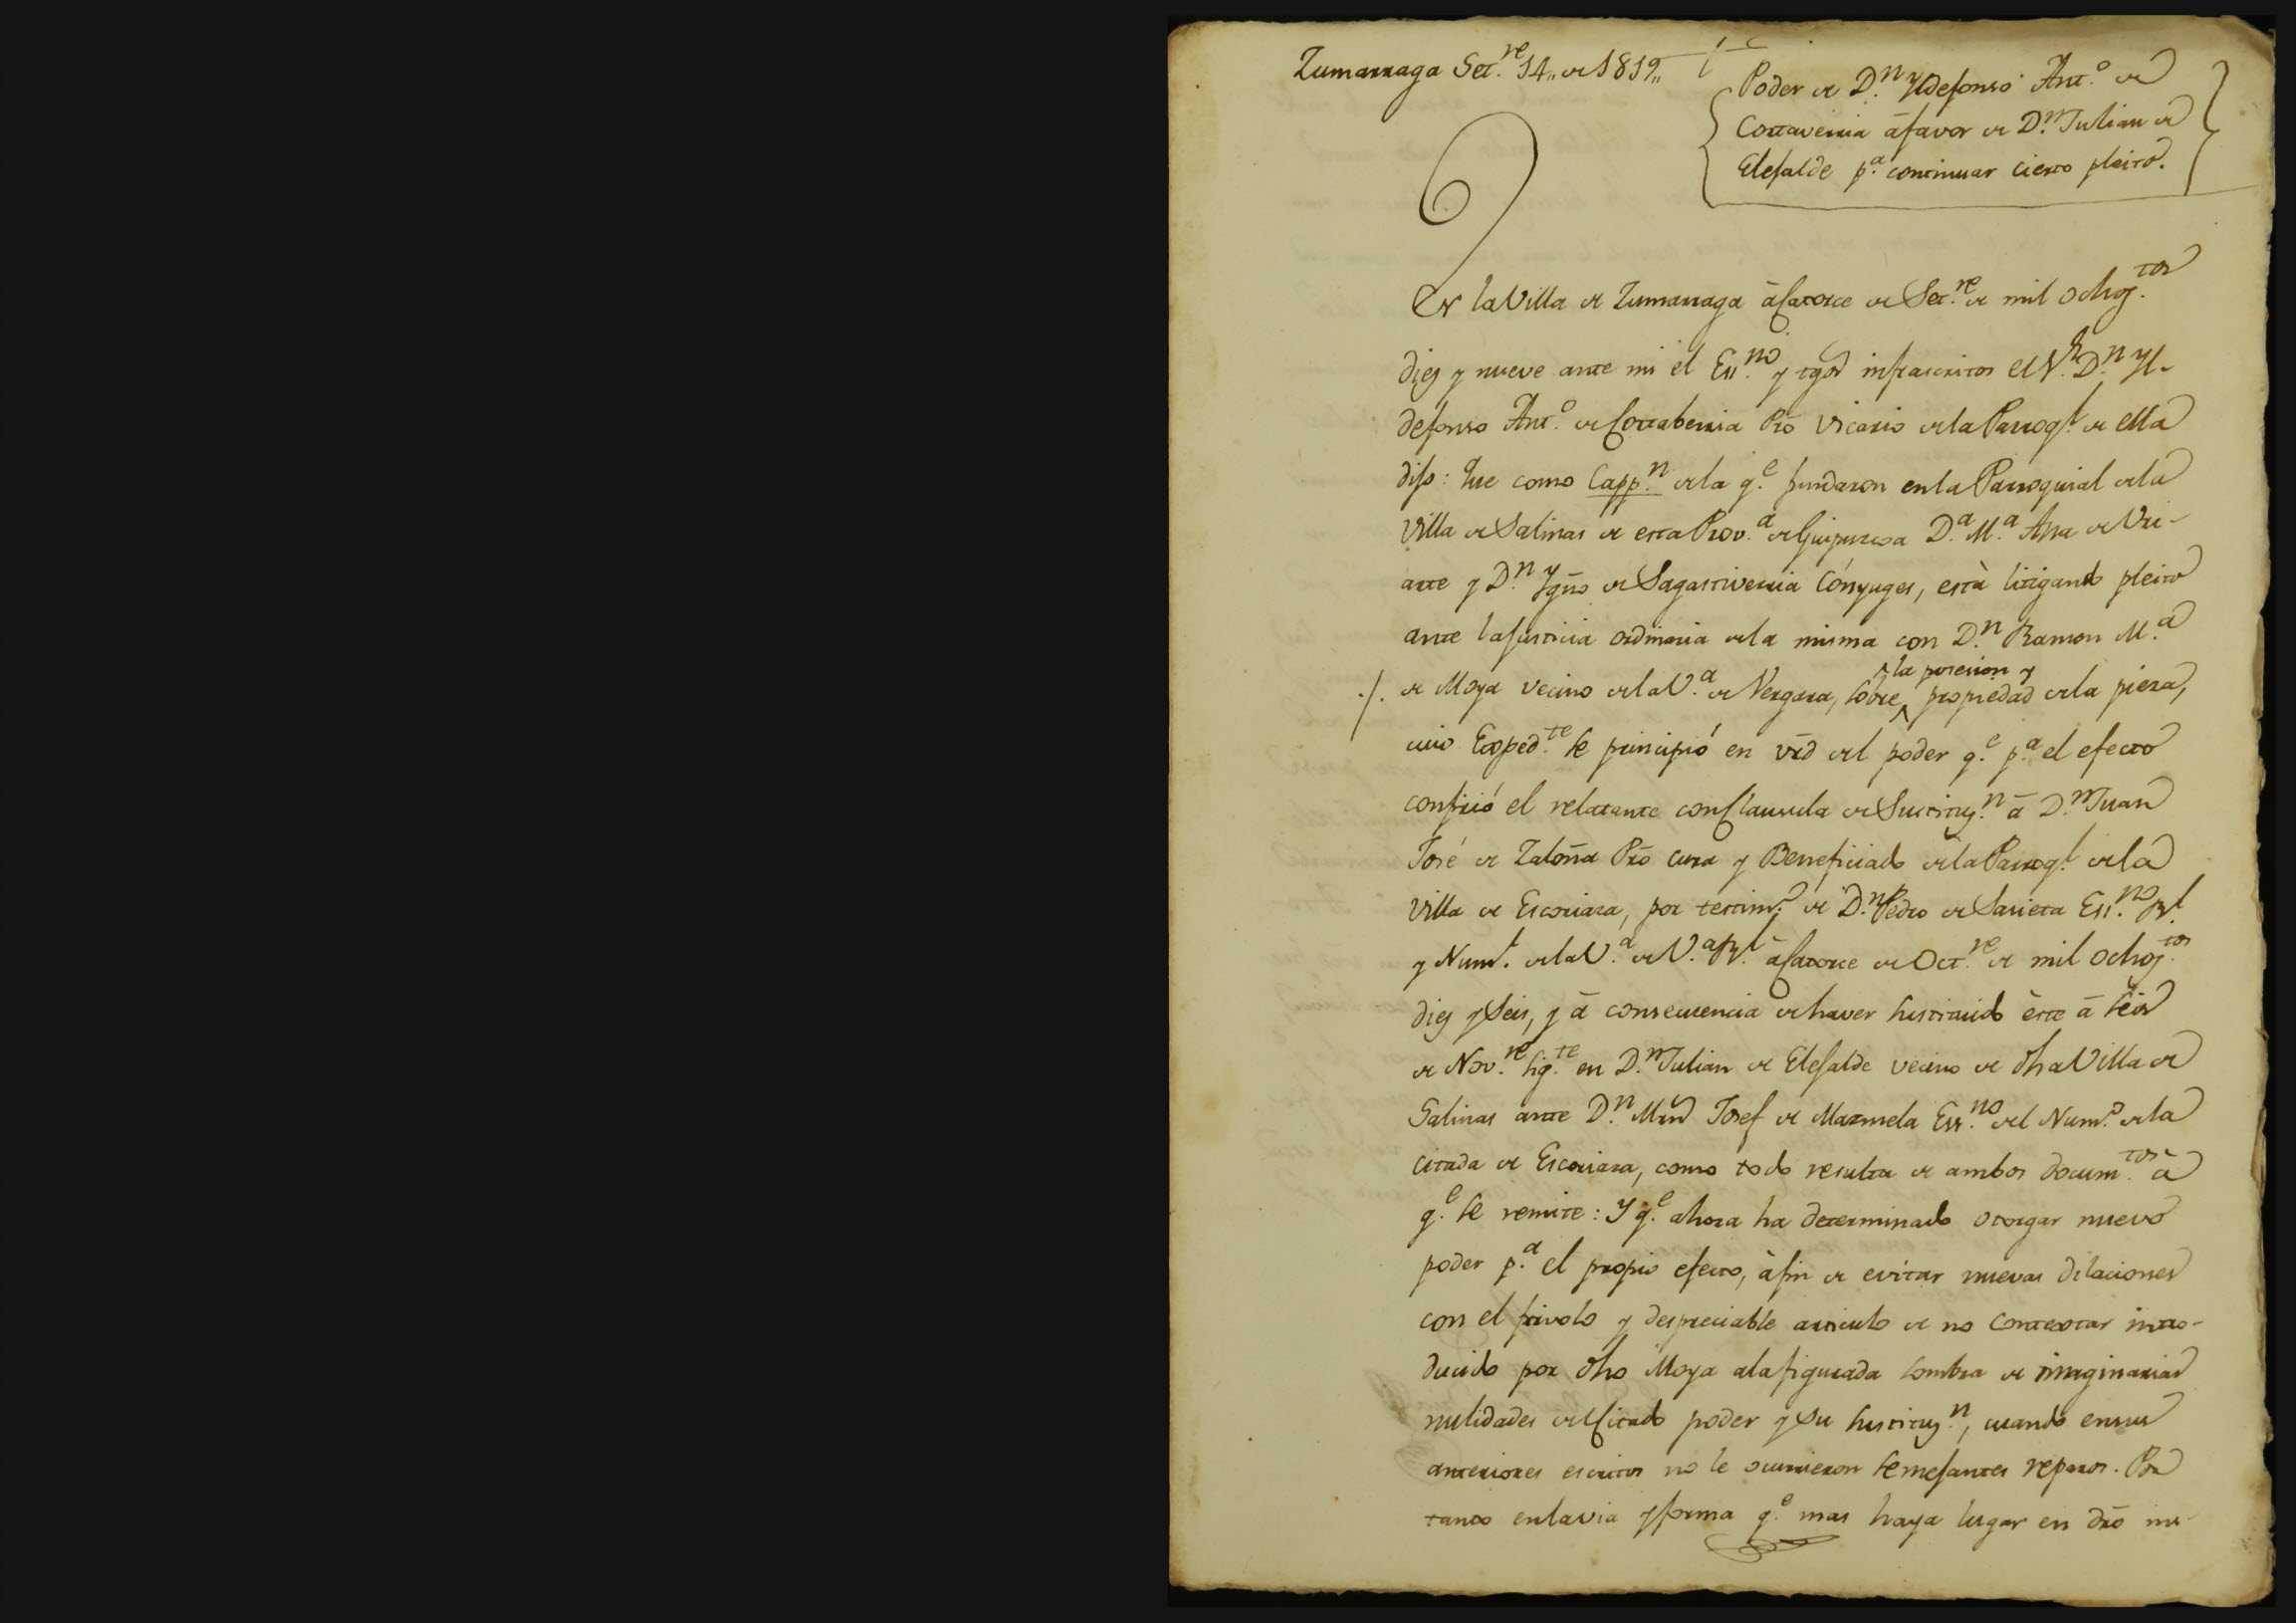 Zumarraga Set.re 14,, de 1819,,
Poder de D.n Yldefonso Ant.o de
Cortaverria á favor de D.n Julian de
Elejalde p.a continuar cierto pleito.
En la Villa de Zumarraga á catorce de Set.re de mil ochoz.tos
diez y nueve ante mi el Ess.no y tgos infrascritos el S.r D.n Yl-
defonso Ant.o de Cortaberria Pro Vicario de la Parroq.l de ella
dijo: Que como Capp.n de la q.e fundaron en la Parroquial de la
Villa de Salinas de esta Prov.a de Guipuzcoa D.a M.a Ana de Uri-
arte y D.n Ygno de Sagastiverria Cónyuges, està litigando pleito
ante la Justicia ordinaria de la misma con D.n Ramon M.a
./. de Moya vecino de la V.a de Vergara, sobre ^ la posesion y propiedad de la pieza,
cuio Exped.te se principió en vrd del poder q.e p.a el efecto
confirió el relatante con Clausula de Sustituy.n á D.n Juan
José de Zaloña Pro cura y Beneficiado de la Parroq.l de la
Villa de Escoriaza, por testim.o de D.n Pedro de Sarieta Ess.no R.l
y Num.l de la V.a de V.a R.l á catorce de Oct.re de mil ochoz.tos
diez y Seis, y á consecuencia de haver sustituido èste á seis
de Nov.re sig.te en D.n Julian de Elejalde vecino de dha Villa de
Salinas ante D.n Mrn Josef de Mazmela Ess.no del Num.o de la
citada de Escoriaza, como todo resulta de ambos docum.tos à
q.e se remite: Y q.e ahora ha determinado otorgar nuevo
poder p.a el propio efecto, à fin de evitar nuevas dilaciones
con el frivolo y despreciable articulo de no contextar intro-
ducido por dho Moya a la figurada sombra de imaginarias
nulidades del Citado poder y su sustituy.n, cuando en sus
anteriores escritos no le ocurrieron semejantes reparos. Por
tanto en la via y forma q.e mas haya lugar en dro nu-